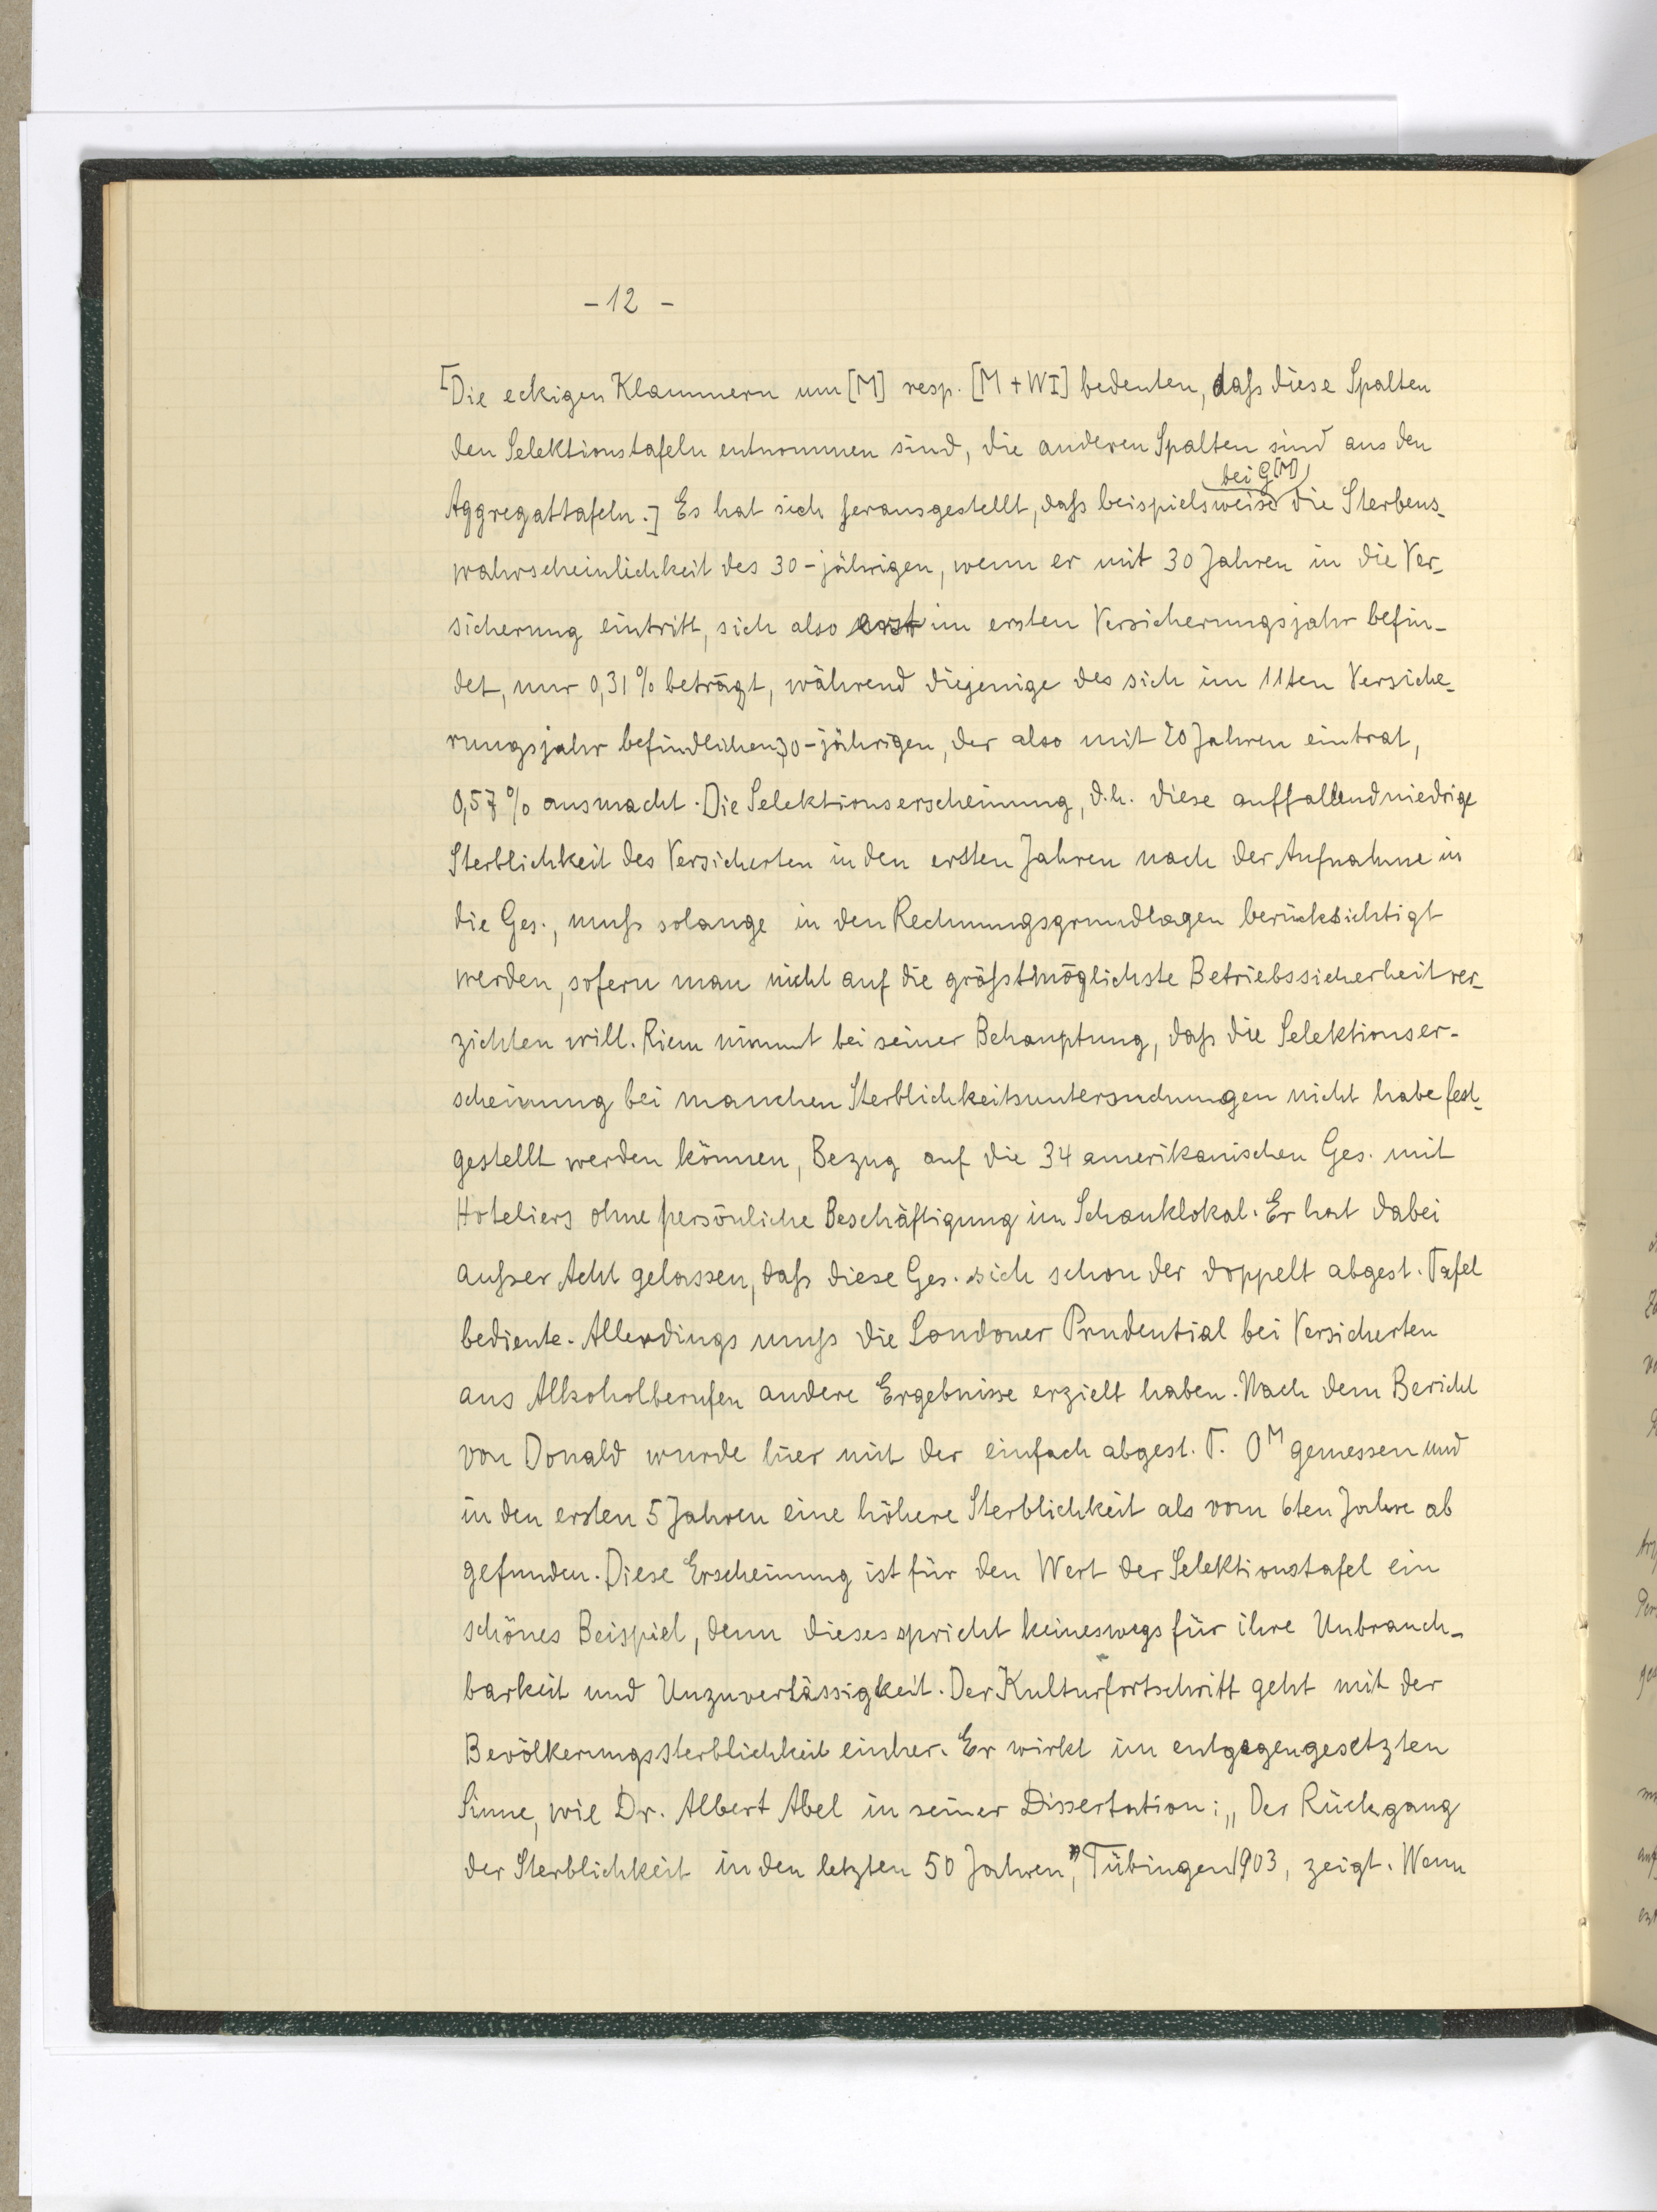 - 12 -
[Die eckigen Klammern um [M] resp. [M + WI] bedeuten, dass diese Spalten
den Selektionstafeln entnommen sind, die anderen Spalten sind aus den
bei G[M]
Aggregattafeln.] Es hat sich herausgestellt, dass beispielsweise die Sterbens-
wahrscheinlichkeit des 30-jährigen, wenn er mit 30 Jahren in die Ver-
sicherung eintritt, sich also erst im ersten Versicherungsjahr befin-
det, nur 0,31 % beträgt, während diejenige des sich im 11ten Versiche-
rungsjahr befindlichen 30-jährigen, der also mit 20 Jahren eintrat,
0,57 % ausmacht. Die Selektionserscheinung, d.h. diese auffallend niedrige
Sterblichkeit des Versicherten in den ersten Jahren nach der Aufnahme in
die Ges., muss solange in den Rechnungsgrundlagen berücksichtigt
werden, sofern man nicht auf die grösstmöglichste Betriebssicherheit ver-
zichten will. Riem nimmt bei seiner Behauptung, dass die Selektionser-
scheinung bei manchen Sterblichkeitsuntersuchungen nicht habe fest-
gestellt werden können, Bezug auf die 34 amerikanischen Ges. mit
Hoteliers ohne persönliche Beschäftigung im Schanklokal. Er hat dabei
ausser Acht gelassen, dass diese Ges. sich schon der doppelt abgest. Tafel
bediente. Allerdings muss die Londoner Prudential bei Versicherten
aus Alkoholberufen andere Ergebnisse erzielt haben. Nach dem Bericht
von Donald wurde hier mit der einfach abgest. T. O^M gemessen und
in den ersten 5 Jahren eine höhere Sterblichkeit als vom 6ten Jahre ab
gefunden. Diese Erscheinung ist für den Wert der Selektionstafel ein
schönes Beispiel, denn dieses spricht keineswegs für ihre Unbrauch-
barkeit und Unzuverlässigkeit. Der Kulturfortschritt geht mit der
Bevölkerungssterblichkeit einher. Er wirkt im entgegengesetzten
Sinne, wie Dr. Albert Abel in seiner Dissertation: „Der Rückgang
der Sterblichkeit in den letzten 50 Jahren", Tübingen 1903, zeigt. Wenn